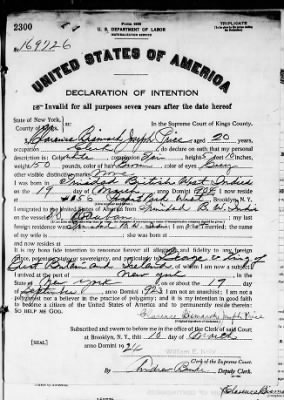 2300
Form 2203
TRIPLICATE
No. 169726
U. S. DEPARTMENT OF LABOR
NATURALIZATION SERVICE
UNITED STATES OF AMERICA
DECLARATION OF INTENTION
Invalid for all purposes seven years after the date hereof
State of New York,
In the Supreme Court of Kings County.
County of Kings
I, Clarence Bernard Joseph Price aged 20 years,
occupation Clerk, do declare on oath that my personal
description is: Color white, complexion Fair, height 5 feet inches,
weight 150 pounds, color of hair Brown, color of eyes
other visible distinctive marks None
I was born in Trinidad British West Indies
on the 19 day of March, anno Domini; I now reside
at Park West, Brooklyn, N. Y.
I emigrated to the United States of America from Trinidad B. W. Indies
on the vessel SS; my last
foreign residence was Trinidad B. W. Indies; I am not married; the name
of my wife is; she was born at
and now resides at
It is my bona fide intention to renounce forever all allegiance and fidelity to any foreign
prince, potentate, state, or sovereignty, and particularly to George V King of
Great Britain and Ireland, of whom I am now a subject
I arrived at the port of New York, in the
State of New York, on or about the 19 day
of September, anno Domini 1923; I am not an anarchist; I am not a
polygamist nor a believer in the practice of polygamy; and it is my intention in good faith
to become a citizen of the United States of America and to permanently reside therein:
SO HELP ME GOD.
Clarence Bernard Joseph Price
Subscribed and sworn to before me in the office of the Clerk of said Court
at Brooklyn, N. Y., this 10 day of March
anno Domini 1924
Clerk of the Supreme Court.
By, Deputy Clerk.
Clarence Bernard